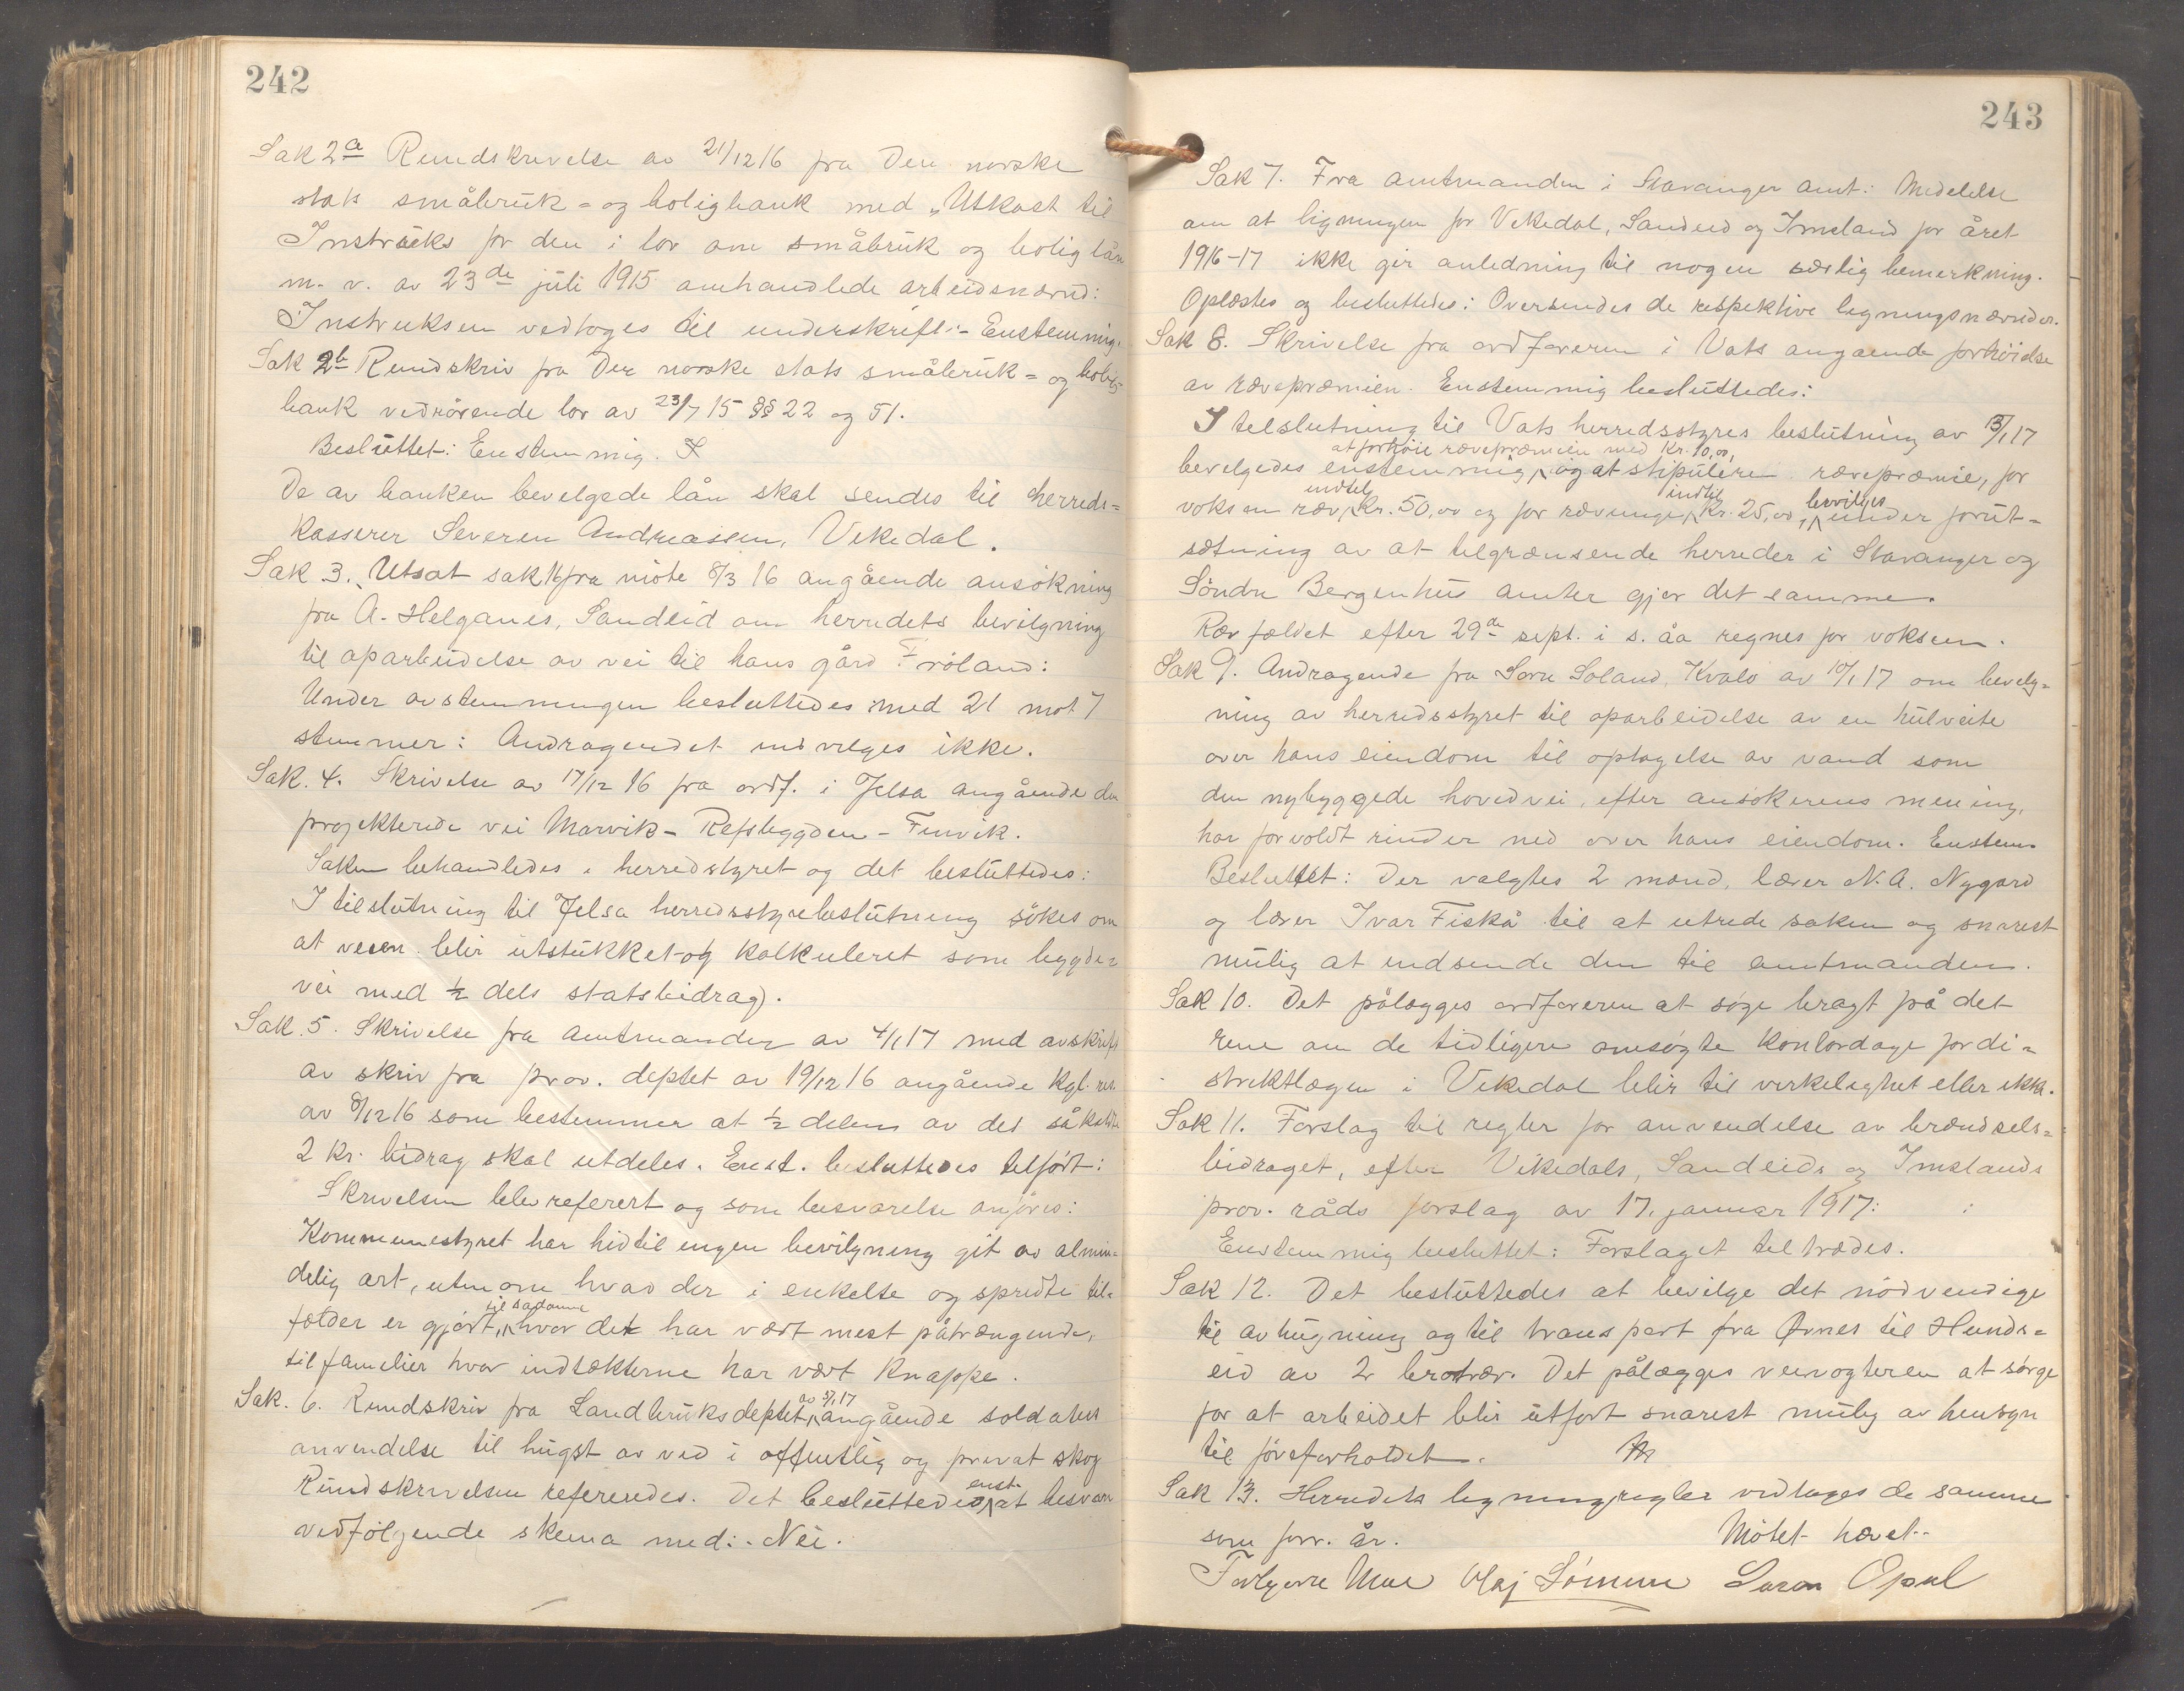 242
Sak 2a Rundskrivelse av 21/12 16 fra Den norske
stats småbruk- og boligbank med „Utkast til
Instruks for den i lov om småbruk og boliglån
m. v. av 23de juli 1915 omhandlede arbeidsnævnd:
Instruksen vedtoges til underskrift:- Enstemmig.
Sak 2b Rundskriv fra Den norske stats småbruk= og bolig=
bank vedrörende lov av 23/7 15 §§ 22 og 51.
Besluttet: Enstemmig.
De av banken bevilgede lån skal sendes til herreds=
kasserer Severin Andreassen, Vikedal.
Sak 3. Utsat sak 16 fra möte 8/3 16 angående ansökning
fra A. Helganes, Sandeid om herredets bevilgning
til oparbeidelse av vei til hans gård Fröland:
Under avstemningen besluttedes med 21 mot 7
stemmer: Andragendet indvilges ikke.
Sak. 4. Skrivelse av 17/12 16 fra ordf. i Jelsa angående den
projekterede vei Marvik - Refsbygden - Finvik.
Saken behandledes i herredstyret og det besluttedes:
I tilslutning til Jelsa herredsstyrebeslutning sökes om
at veien blir utstukket og kalkuleret som bygde=
vei med ½ dels statsbidrag).
Sak. 5. Skrivelse fra amtmanden av 4/1 17 med avskrift
av skriv fra prov. deptet av 19/12 16 angående kgl. res.
av 8/12 16 som bestemmer at ½ delen av det såkaldte
2 kr. bidrag skal utdeles. Enst. besluttedes tilfört:
Skrivelsen blev referert og som besvarelse anføres:
Kommunestyret har hidtil ingen bevilgning git av almin=
delig art, utenom hvad der i enkelte og spredte til=
fælder er gjort, til sadanne hvor det har vært mest påtrængende,
til familier hvor indtækterne har vært knappe.
Sak. 6. Rundskriv fra Landbruksdeptet av 5/1 17 angående soldaters
anvendelse til hugst av ved i offentlig og privat skog
Rundskrivelsen refereredes. Det besluttedes enst. at besvare
vedfölgende skema med:- Nei.
243
Sak 7. Fra amtmanden i Stavanger amt: Medelelse
om at ligningen for Vikedal, Sandeid og Imsland for året
1916-17 ikke gir anledning til nogen særlig bemerkning.
Oplæstes og besluttedes: Oversendes de respektive ligningsnævnder.
Sak 8. Skrivelse fra ordföreren i Vats angaende forhöidse
av rævepræmien. Enstemmig besluttedes:
I tilslutning til Vats herredsstyres beslutning av 13/1 17
at forhöie rævepræmien med Kr. 10,00,
bevilgedes enstemmig, og at stipulere rævepræmie, for
voksen ræv, indtil Kr. 50,00 og for rævunge indtil Kr. 25,00, bevilges under forut=
sætning av at tilgrænsende herreder i Stavanger og
Söndre Bergenhus amter gjör det samme.
Ræv fældet efter 29de sept. i s. åa regnes for voksen.
Sak 9. Andragende fra Soland, Kvalö av 10/1 17 om bevilg=
ning av herredsstyret til oparbeidelse av en kulveite
over hans eiendom til optagelse av vand som
den nybyggede hovedvei, efter ansökerens mening,
har forvoldt rinder ned over hans eiendom. Enstem.
Besluttet: Der valgtes 2 mænd, lærer N. A. Nygard
og lærer Ivar Fiskå til at utrede saken og snarest
mulig at indsende den til amtmanden.
Sak 10. Det pålægges ordføreren at søge bragt på det
rene om de tidligere ansøgte kontordage for di=
striktlægen i Vikedal blir til virkelighet eller ikke.
Sak 11. Forslag til regler for anvendelse av brændsels=
bidraget, efter Vikedals, Sandeids og Imslands
prov. råds forslag av 17. januar 1917:
Enstemmig besluttet: Forslaget tiltrædes.
Sak 12. Det besluttedes at bevilge det nödvendige
til avhugning og til transport fra Ørnes til Hunds=
eid av 2 brotrær. Det pålægges veivogteren at sørge
for at arbeidet blir utfört snarest mulig av hensyn
til föreforholdet.
Sak 13. Herredets ligningsregler vedtages de samme
som forr. år. Mötet hævet.
Olaj Sömme Opsal